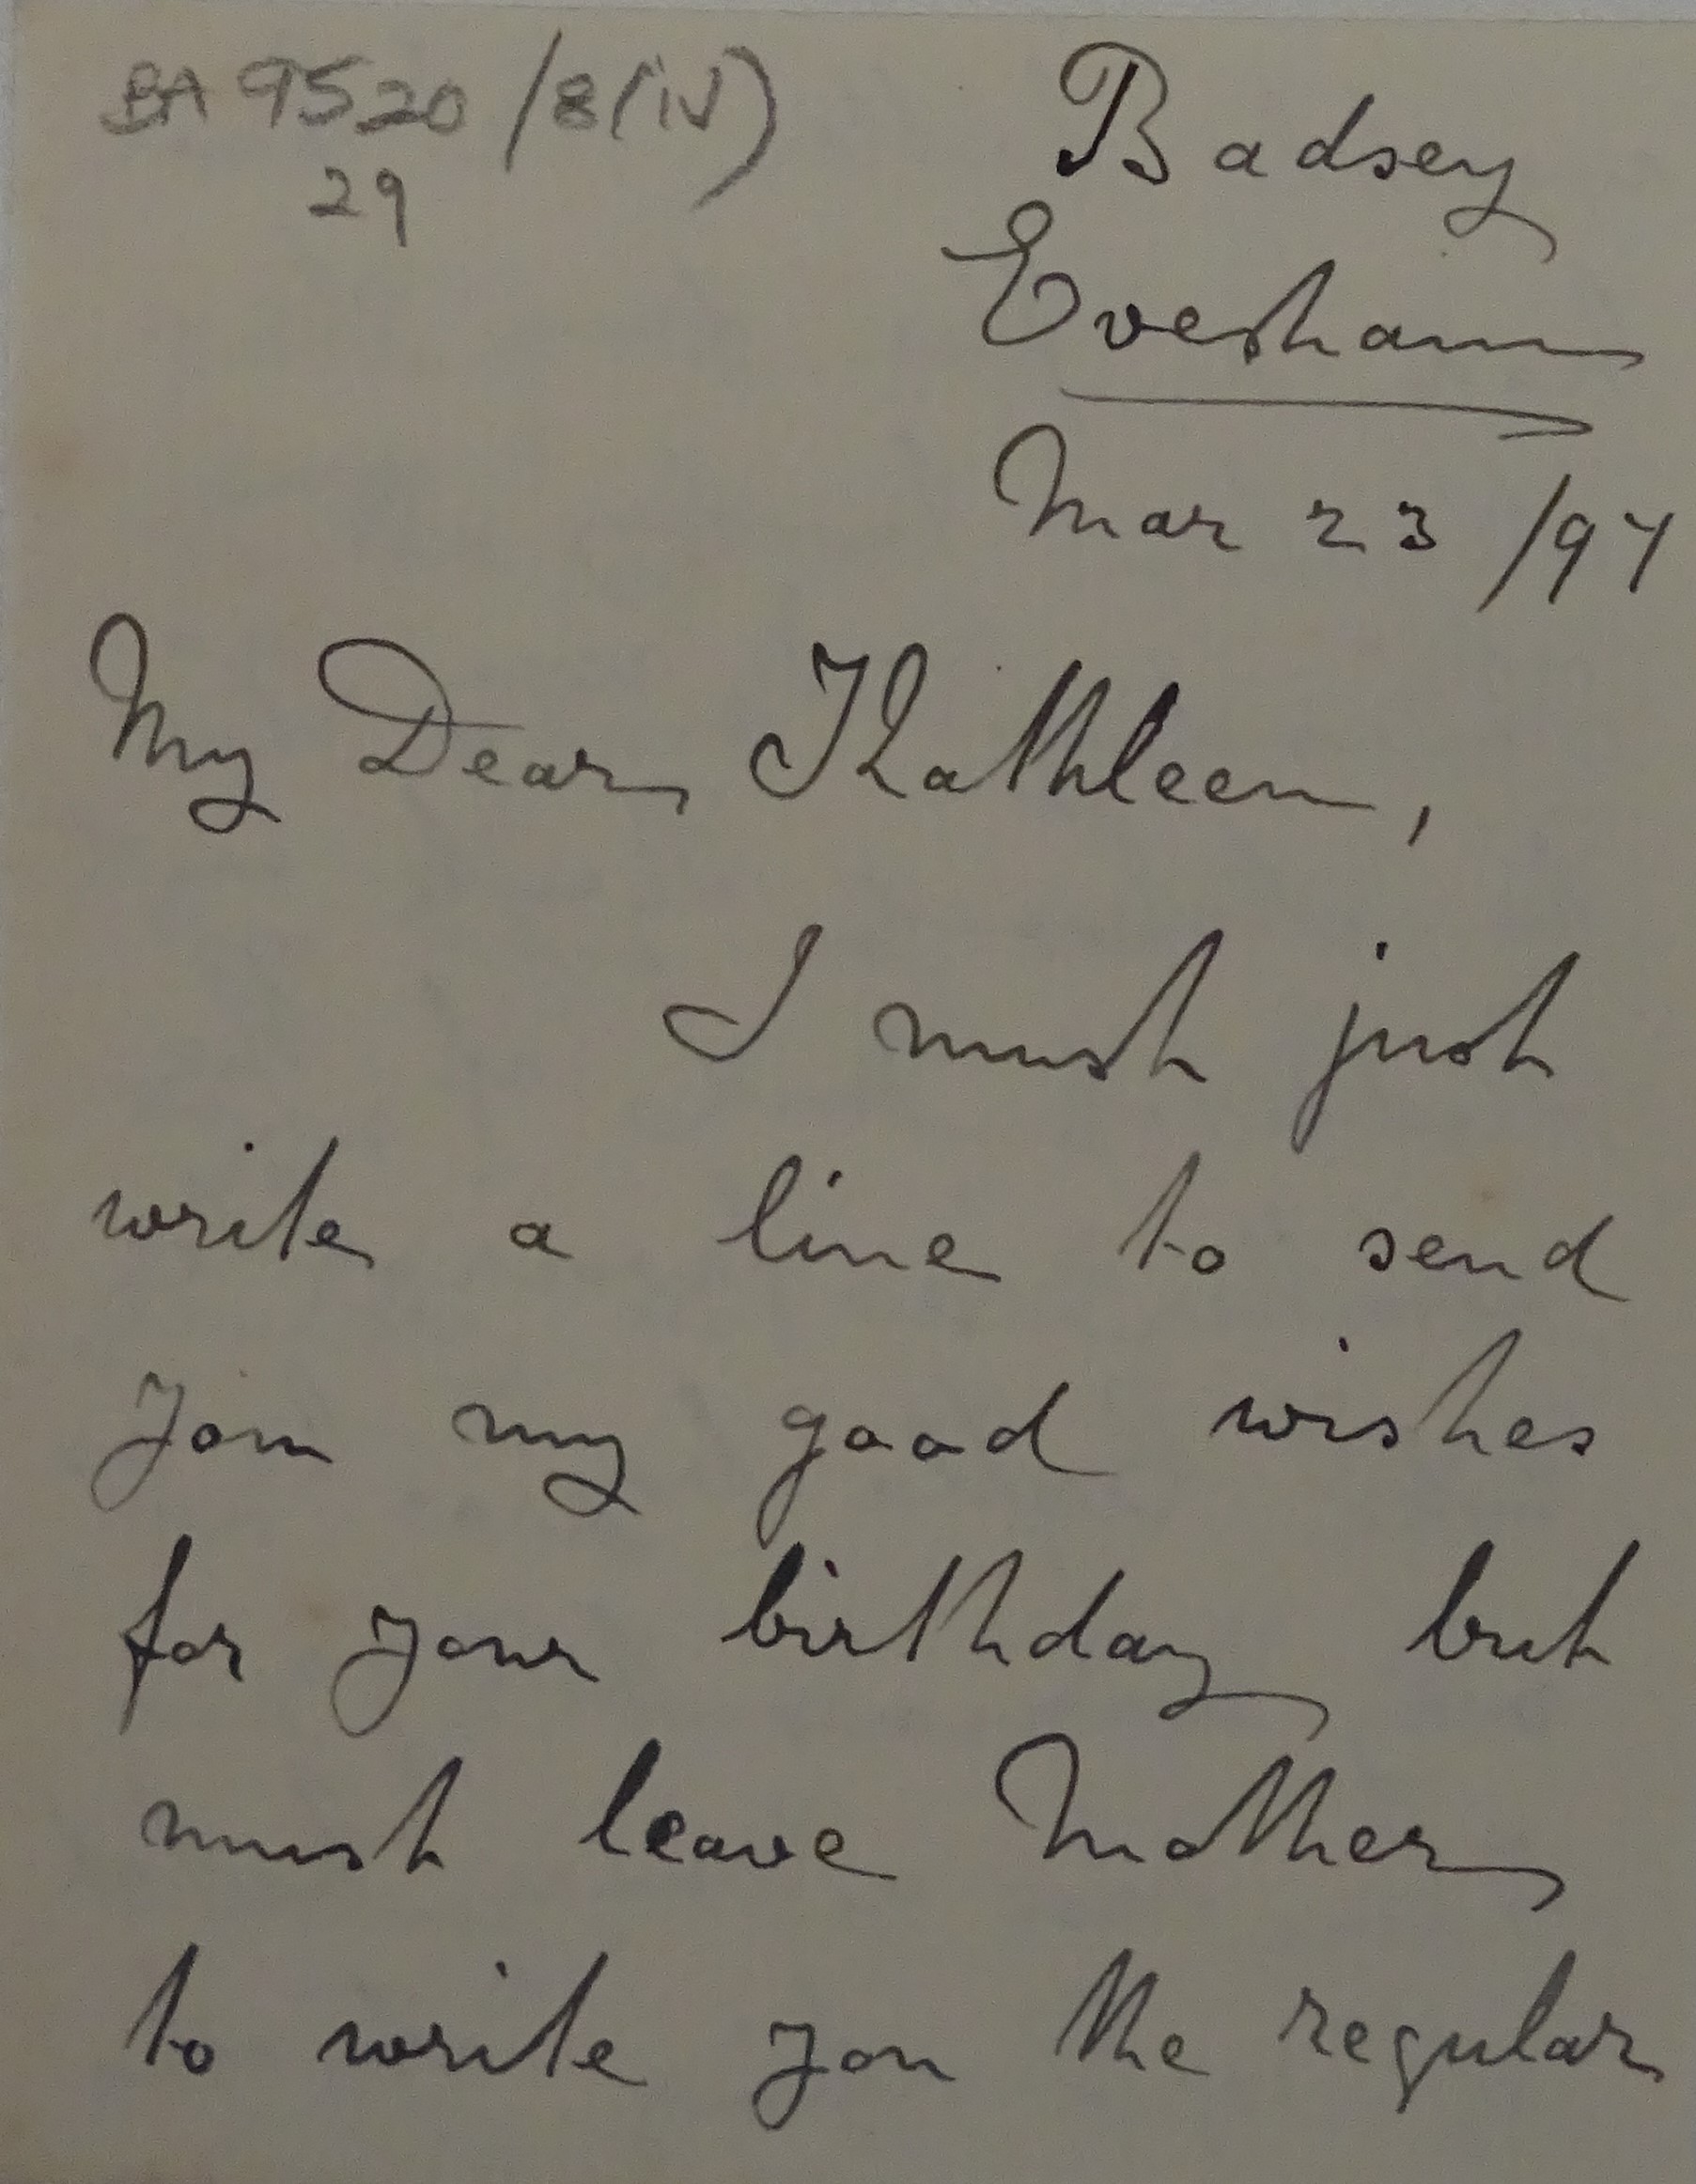 BA 9520/8(iv)
29
Badsey
Evesham
Mar 23/97
My Dear Kathleen,
I must just
write a line to send
you my good wishes
for your birthday but
must leave Mother
to write you the regular